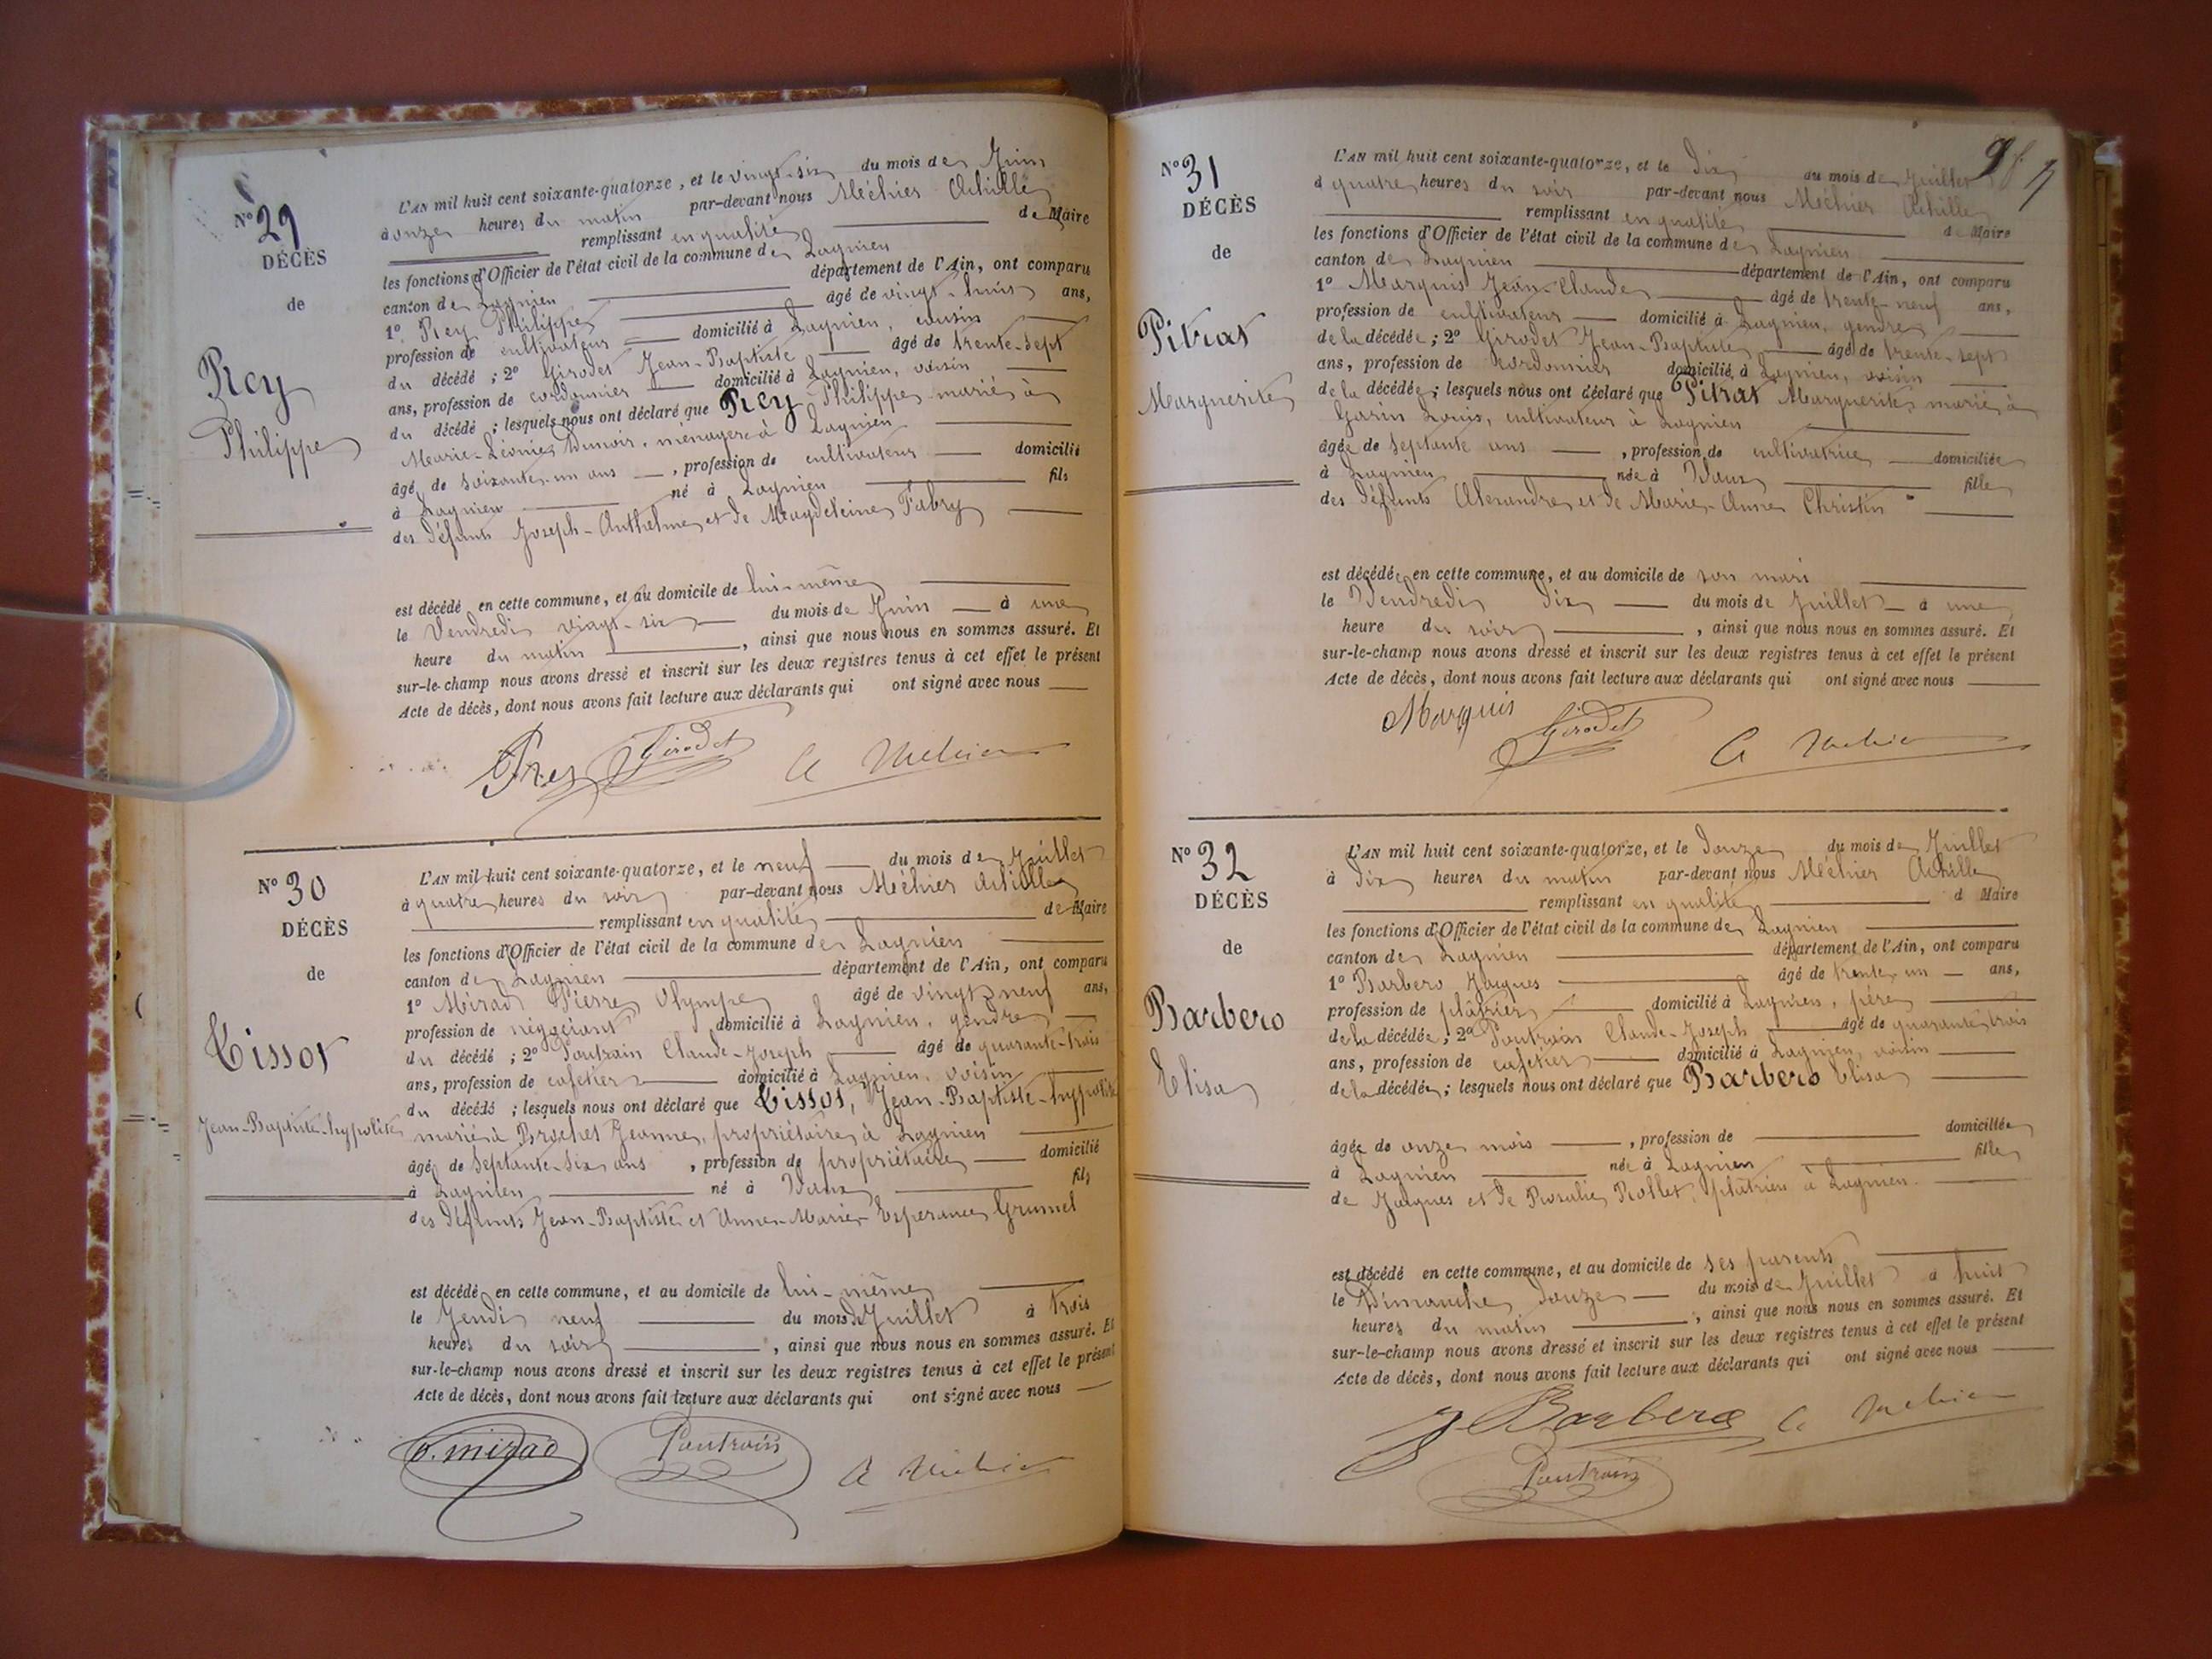 N° 29
DÉCÈS
de
Rey
Philippe
L'AN mil huit cent soixante-quatorze, et le vingt-six du mois de Juin
à onze heures du matin par-devant nous Méhier Achille
remplissant en qualité de Maire
les fonctions d'Officier de l'état civil de la commune de Lagnieu
canton de Lagnieu département de l'Ain, ont comparu
1° Rey Philippe âgé de vingt-huit ans,
profession de cultivateur domicilié à Lagnieu, cousin
du décédé ; 2° Girodet Jean-Baptiste âgé de trente-sept
ans, profession de cordonnier domicilié à Lagnieu, voisin
du décédé ; lesquels nous ont déclaré que Rey Philippe marié à
Marie-Léonie Dunoir, ménagère à Lagnieu
âgé de soixante-un ans, profession de cultivateur domicilié
à Lagnieu né à Lagnieu fils
des défunts Joseph-Anthelme et de Magdeleine Fabry
est décédé en cette commune, et au domicile de lui-même
le Vendredi vingt-six du mois de Juin à une
heure du matin, ainsi que nous nous en sommes assuré. Et
sur-le-champ nous avons dressé et inscrit sur les deux registres tenus à cet effet le présent
Acte de décès, dont nous avons fait lecture aux déclarants qui ont signé avec nous
Girodet A Mehier
N° 30
DÉCÈS
de
Tissot
Jean-Baptiste-hypolite
L'AN mil huit cent soixante-quatorze, et le neuf du mois de Juillet
à quatre heures du soir par-devant nous Méhier Achille
remplissant en qualité de Maire
les fonctions d'Officier de l'état civil de la commune de Lagnieu
canton de Lagnieu département de l'Ain, ont comparu
1° Mirad Pierre Olympe âgé de vingt neuf ans,
profession de négociant domicilié à Lagnieu, gendre
du décédé ; 2° Poutrain Claude-Joseph âgé de quarante-trois
ans, profession de cafetier domicilié à Lagnieu, voisin
du décédé ; lesquels nous ont déclaré que Tissot, Jean-Baptiste-hypolite
marié à Brochet Jeanne, propriétaire à Lagnieu
âgé de septante-six ans, profession de propriétaire domicilié
à Lagnieu né à Vaux fils
des défunts Jean-Baptiste et Anne-Marie Esperance Grumel
est décédé en cette commune, et au domicile de lui-même
le Jeudi neuf du mois de Juillet à trois
heures du soir, ainsi que nous nous en sommes assuré. Et
sur-le-champ nous avons dressé et inscrit sur les deux registres tenus à cet effet le présent
Acte de décès, dont nous avons fait lecture aux déclarants qui ont signé avec nous
o. mirad Poutrain A Mehier
N° 31
DÉCÈS
de
Pitrat
Marguerite
L'AN mil huit cent soixante-quatorze, et le dix du mois de Juillet
à quatre heures du soir par-devant nous Méhier Achille
remplissant en qualité de Maire
les fonctions d'Officier de l'état civil de la commune de Lagnieu
canton de Lagnieu département de l'Ain, ont comparu
1° Marquis Jean-Claude âgé de trente-neuf ans,
profession de cultivateur domicilié à Lagnieu, gendre
de la décédée ; 2° Girodet Jean-Baptiste âgé de trente-sept
ans, profession de cordonnier domicilié à Lagnieu, voisin
de la décédée ; lesquels nous ont déclaré que Pitrat Marguerite, marié à
Garin Louis, cultivateur à Lagnieu
âgée de septante ans, profession de cultivatrice domiciliée
à Lagnieu née à Vaux fille
des défunts Alexandre et de Marie-Anne Christin
est décédée en cette commune, et au domicile de son mari
le Vendredi dix du mois de Juillet à une
heure du soir, ainsi que nous nous en sommes assuré. Et
sur-le-champ nous avons dressé et inscrit sur les deux registres tenus à cet effet le présent
Acte de décès, dont nous avons fait lecture aux déclarants qui ont signé avec nous
Marquis Girodet A Mehier
N° 32
DÉCÈS
de
Barbero
Elisa
L'AN mil huit cent soixante-quatorze, et le douze du mois de Juillet
à dix heures du matin par-devant nous Méhier Achille
remplissant en qualité d Maire
les fonctions d'Officier de l'état civil de la commune de Lagnieu
canton de Lagnieu département de l'Ain, ont comparu
1° Barbero Jacques âgé de trente-un ans,
profession de plâtrier domicilié à Lagnieu, père
de la décédée ; 2° Poutrain Claude-Joseph âgé de quarante-trois
ans, profession de cafetier domicilié à Lagnieu, voisin
de la décédée ; lesquels nous ont déclaré que Barbero Elisa
âgée de onze mois, profession de domiciliée
à Lagnieu née à Lagnieu fille
de Jacques et de Rosalie Rollet, plâtrier à Lagnieu.
est décédé en cette commune, et au domicile de ses parents
le Dimanche douze du mois de Juillet à huit
heures du matin, ainsi que nous nous en sommes assuré. Et
sur-le-champ nous avons dressé et inscrit sur les deux registres tenus à cet effet le présent
Acte de décès, dont nous avons fait lecture aux déclarants qui ont signé avec nous
J Barbero A Mehier
Poutrain